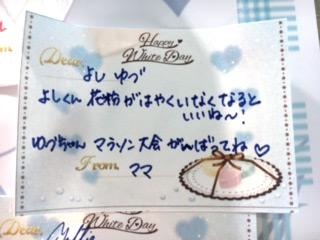 Happy
White Day
Dear.
よし ゆづ
よしくん 花粉がはやくいなくなると
いいね〜!
ゆづちゃん マラソン大会 がんばってね♡
From.
ママ
Happy
White Day
Dear.